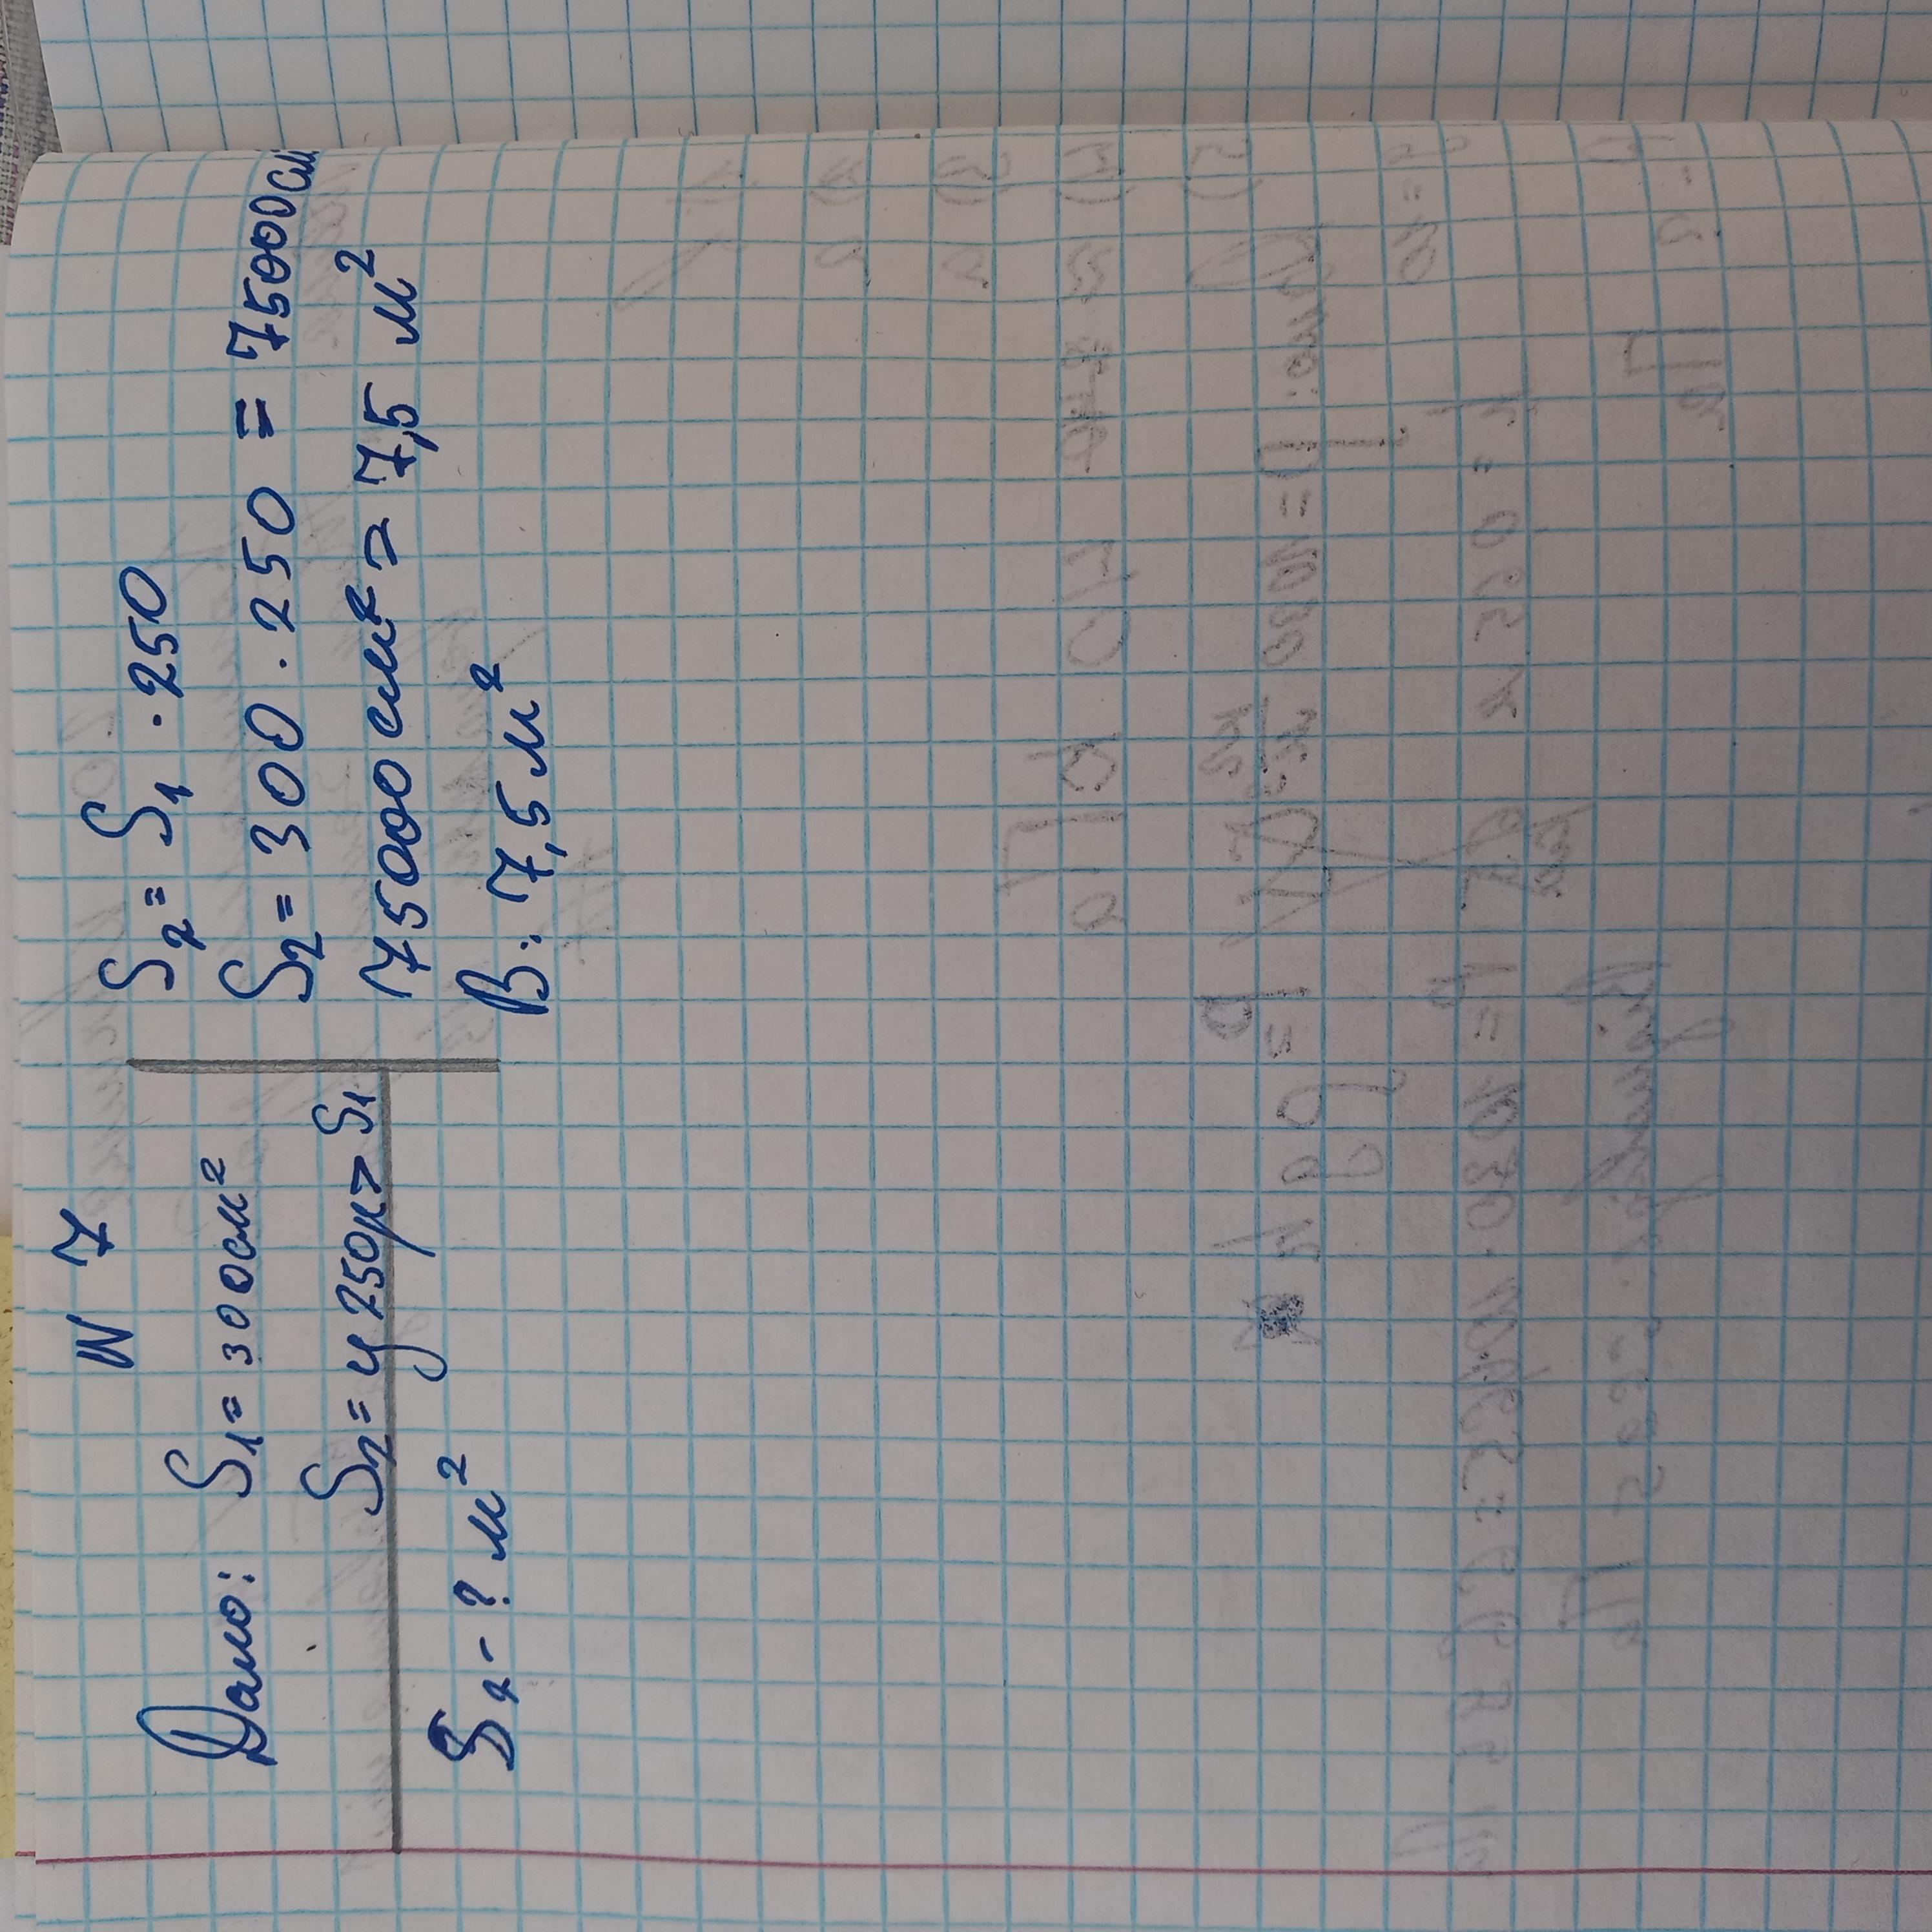 N 7
Дано: S₁ = 300см²
S₂ = у 250р > S₁
S₂ - ? м²
S₂ = S₁ · 250
S₂ = 300 · 250 = 75000см
75000см² = 7,5 м²
В: 7,5 м²